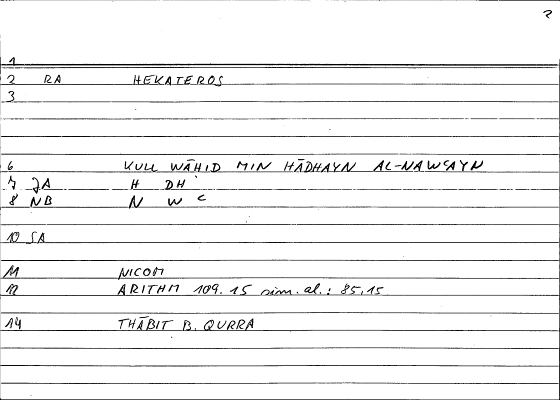 2
1
2 RA HEKATEROS
3
6 KULL WĀHID MIN HĀDHAYN AL-NAWʿAYN
7 JA H DH
8 NB N W ʿ
10 SA
11 NICOM
12 ARITHM 109.15 sim. al.: 85,15
14 THĀBIT B. QURRA